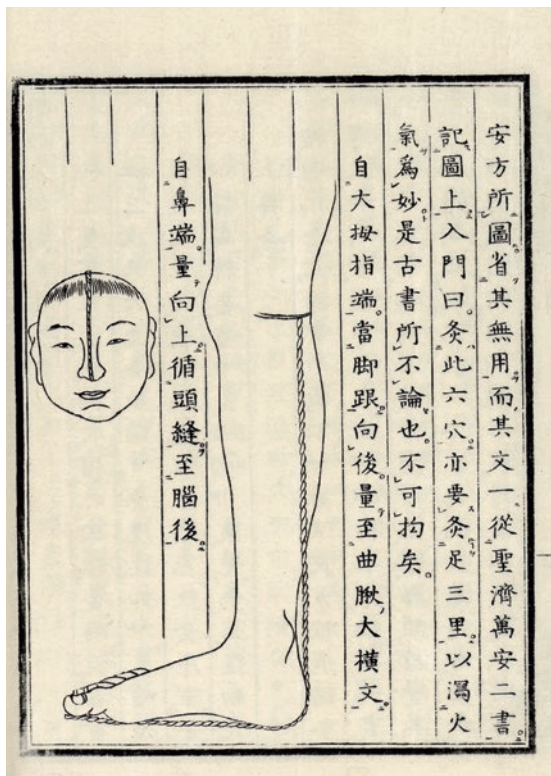 安方所圖省其無用而其文一從聖濟萬安二書
記圖上入門曰灸此六穴亦要灸足三里以瀉火
氣爲妙是古書所不論也不可拘矣
自大拇指端當脚跟向後量至曲䐐大橫文
自鼻端量向上循頭縫至腦後